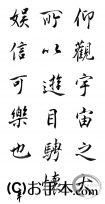 仰觀宇宙之大
所以遊目騁懷
娯信可樂也夫
(C)お手本.com